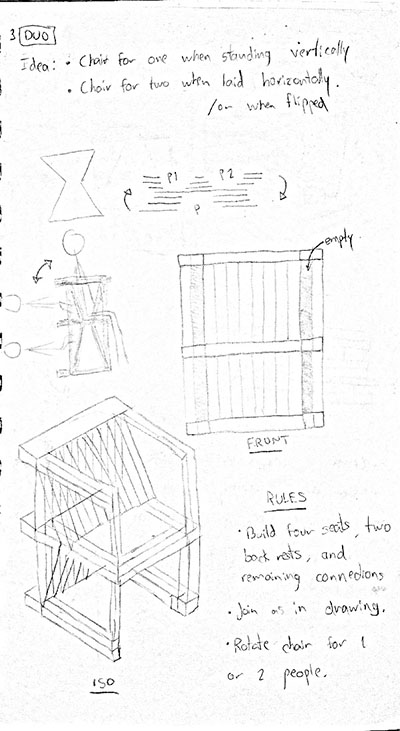 3 DUO
Idea: • Chair for one when standing vertically
• Chair for two when laid horizontally.
/or when flipped
P1 P2
P
empty
FRONT
RULES
• Build four seats, two
back rests, and
remaining connections
• Join as in drawing.
• Rotate chair for 1
or 2 people.
ISO